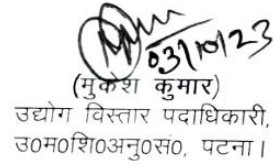 03/10/23
(मुकेश कुमार)
उद्योग विस्तार पदाधिकारी,
उ0म0शि0अनु0सं0, पटना।